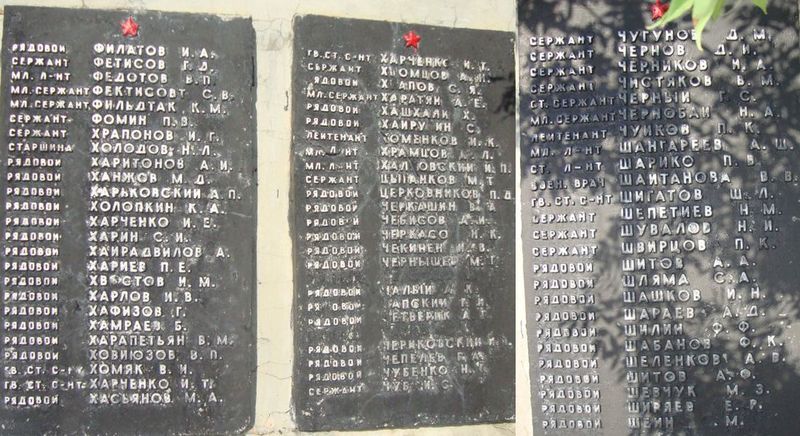 РЯДОВОЙ ФИЛАТОВ И. А.
СЕРЖАНТ ФЕТИСОВ Г. Д.
МЛ. Л-НТ ФЕДОТОВ В. П.
МЛ. СЕРЖАНТ ФЕКТИСОВТ С. В.
МЛ. СЕРЖАНТ ФИЛЬДТАК К. М.
СЕРЖАНТ ФОМИН П. В.
СЕРЖАНТ ХРАПОНОВ И. Г.
СТАРШИНА ХОЛОДОВ Н. Л.
РЯДОВОЙ ХАРИТОНОВ А. И.
РЯДОВОЙ ХАНЖОВ М. Д.
РЯДОВОЙ ХАРЬКОВСКИЙ А. П.
РЯДОВОЙ ХОЛОПКИН К. А.
РЯДОВОЙ ХАРЧЕНКО И. Е.
РЯДОВОЙ ХАРИН С. И.
РЯДОВОЙ ХАИРАДВИЛОВ А.
РЯДОВОЙ ХАРИЕВ П. Е.
РЯДОВОЙ ХВОСТОВ И. М.
РЯДОВОЙ ХАРЛОВ И. В.
РЯДОВОЙ ХАФИЗОВ Г.
РЯДОВОЙ ХАМРАЕВ Б.
РЯДОВОЙ ХАРАПЕТЬЯН В. М.
РЯДОВОЙ ХОВИЮЗОВ В. П.
ГВ. СТ. С-НТ ХОМЯК В. И.
ГВ. СТ. С-НТ ХАРНЕНКО И. Т.
РЯДОВОЙ ХАСЬЯНОВ М. А.
ГВ. СТ. С-НТ ХАРЧЕНКО И. Т.
СЕРЖАНТ ХЛОМЦОВ А. И.
РЯДОВОЙ С. Я.
МЛ. СЕРЖАНТ ХАРАТЯН А. Е.
РЯДОВОЙ ХАШХАЛИ Х.
РЯДОВОЙ С.
ЛЕЙТЕНАНТ ХОМЕНКОВ И. К.
МЛ. Л-НТ ХРАМЦОВ А. Л.
МЛ. Л-НТ И. П.
СЕРЖАНТ ЦЫПАНКОВ М. Т.
РЯДОВОЙ ЦЕРКОВНИКОВ П. Д.
РЯДОВОЙ ЧЕРКАШИН В. А.
РЯДОВОЙ ЧЕБИСОВ А. И.
РЯДОВОЙ Н. К.
РЯДОВОЙ ЧЕКИНЕН И. В.
РЯДОВОЙ ЧЕРНЫШЕВ М. Т.
РЯДОВОЙ А. К.
Г. И.
РЯДОВОЙ А. Г.
РЯДОВОЙ
РЯДОВОЙ ЧЕПЕЛЕВ
РЯДОВОЙ ЧУБЕНКО Н. Т.
СЕРЖАНТ ЧУБ И. С.
СЕРЖАНТ ЧУГУНОВ Д. М.
СЕРЖАНТ ЧЕРНОВ Д. И.
СЕРЖАНТ ЧЕРНИКОВ И. А.
СЕРЖАНТ ЧИСТЯКОВ В. М.
СТ. СЕРЖАНТ ЧЕРНЫЙ Г. С.
МЛ. СЕРЖАНТ ЧЕРНОБАЙ Н. А.
ЛЕЙТЕНАНТ ЧУЙКОВ П. К.
МЛ. Л-НТ ШАНГАРЕЕВ А. Ш.
СТ. Л-НТ ШАРИКО П. В.
ВОЕН. ВРАЧ ШАИТАНОВА В. В.
ГВ. СТ. С-НТ ШИГАТОВ Ш. Л.
СЕРЖАНТ ШЕПЕТИЕВ Н. М.
СЕРЖАНТ ШУВАЛОВ Н. И.
СЕРЖАНТ ШВИРЦОВ П. К.
РЯДОВОЙ ШИТОВ А. А.
РЯДОВОЙ ШЛЯМА С. А.
РЯДОВОЙ ШАШКОВ И. Н.
РЯДОВОЙ ШАРАЕВ А. Д.
РЯДОВОЙ ШИЛИН Ф. Ф.
РЯДОВОЙ ШАБАНОВ Ф. К.
РЯДОВОЙ ШЕЛЕНКОВ А. В.
РЯДОВОЙ ШИТОВ А. Ф.
РЯДОВОЙ ШЕВЧУК М. З.
РЯДОВОЙ ШИРЯЕВ Е. Р.
РЯДОВОЙ ШЕИН М.